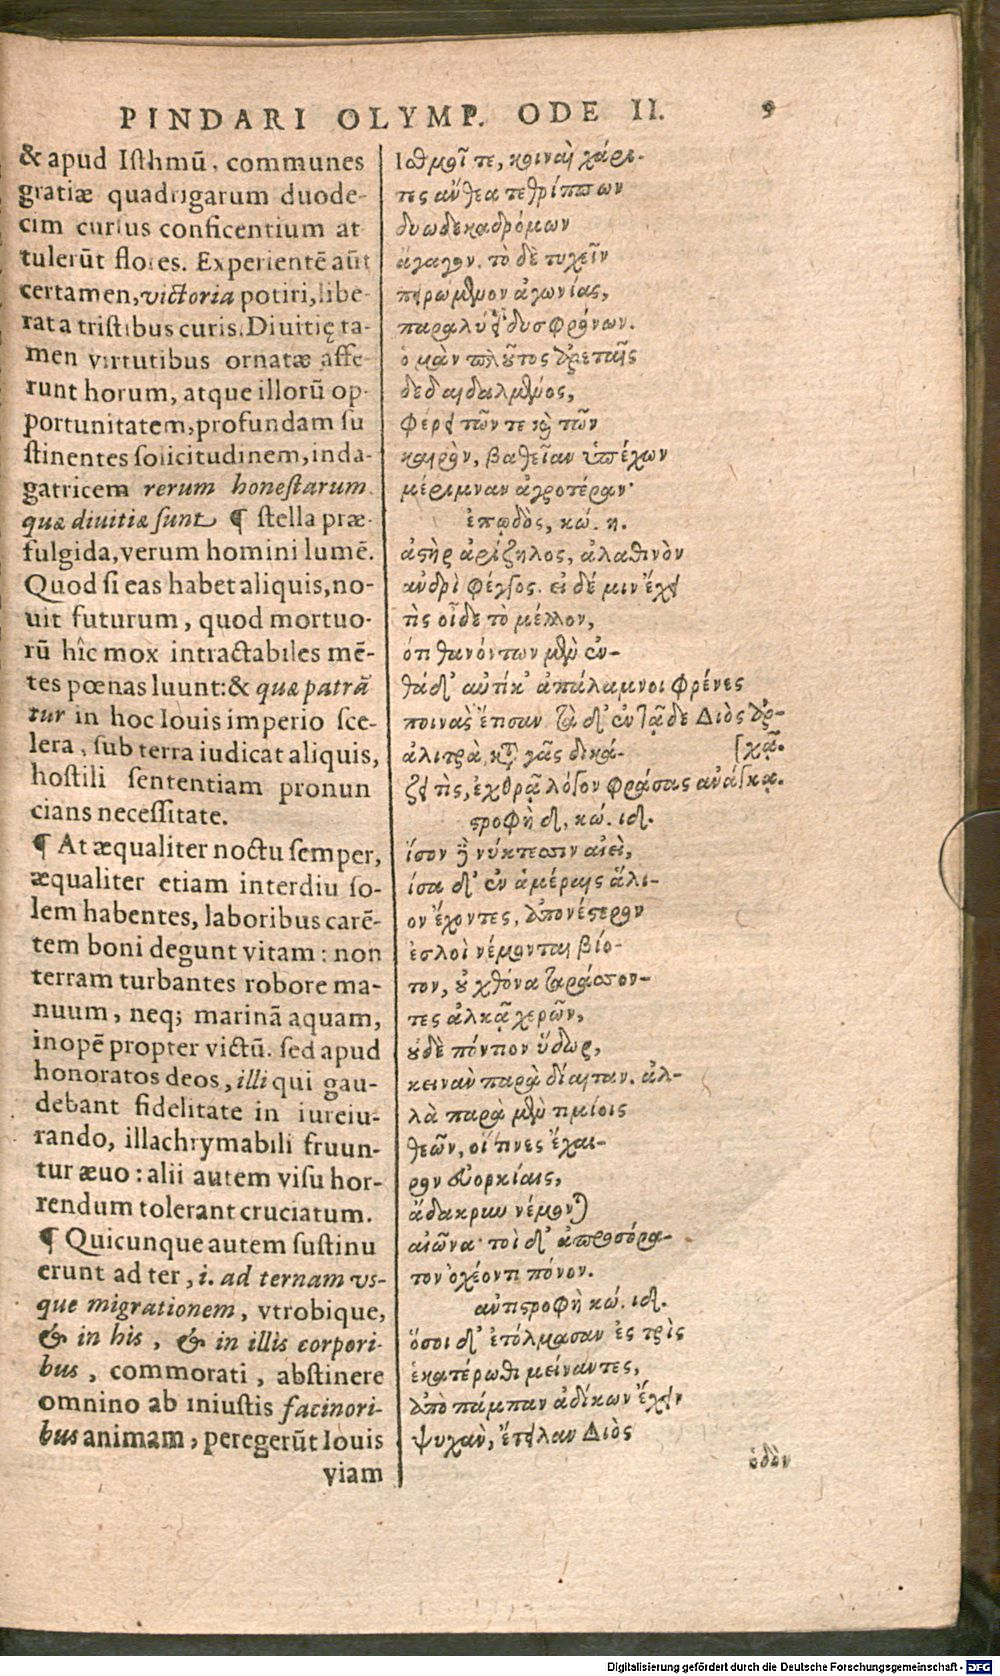 PINDARI OLYMP. ODE II. 9
& apud Isthmū, communes
gratiæ quadrigarum duode-
cim cursus conficentium at
tulerūt flores. Experientē aūt
certamen, victoria potiri, libe-
rat a tristibus curis. Diuitię ta-
men virtutibus ornatæ affe-
runt horum, atque illorū op-
portunitatem, profundam su
stinentes solicitudinem, inda-
gatricem rerum honestarum
quæ diuitiæ sunt ¶ stella præ-
fulgida, verum homini lumē.
Quod si eas habet aliquis, no-
uit futurum, quod mortuo-
rū hîc mox intractabiles mē-
tes pœnas luunt: & quæ patrā
tur in hoc Iouis imperio sce-
lera, sub terra iudicat aliquis,
hostili sententiam pronun
cians necessitate.
¶ At æqualiter noctu semper,
æqualiter etiam interdiu so-
lem habentes, laboribus carē-
tem boni degunt vitam: non
terram turbantes robore ma-
nuum, neq; marinā aquam,
inopē propter victū. sed apud
honoratos deos, illi qui gau-
debant fidelitate in iureiu-
rando, illachrymabili fruun-
tur æuo: alii autem visu hor-
rendum tolerant cruciatum.
¶ Quicunque autem sustinu
erunt ad ter, i. ad ternam vs-
que migrationem, vtrobique,
& in his, & in illis corpori-
bus, commorati, abstinere
omnino ab iniustis facinori-
bus animam, peregerūt Iouis
viam
Ισθμοῖ τε, κοιναὶ χάρι-
τες ἄνθεα τεθρίππων
δυωδεκαδρόμων
ἄγαγον. τὸ δὲ τυχεῖν
πειρώμενον ἀγωνίας,
παραλύει δυσφρόνων.
ὁ μὰν πλοῦτος ἀρεταῖς
δεδαιδαλμένος,
φέρει τῶν τε καὶ τῶν
καιρὸν, βαθεῖαν ὑπέχων
μέριμναν ἀγροτέραν·
ἐπῳδὸς, κώ. η.
ἀστὴρ ἀρίζηλος, ἀλαθινὸν
ἀνδρὶ φέγγος. εἰ δέ μιν ἔχει
τὶς οἶδε τὸ μέλλον,
ὅτι θανόντων μὲν ἐν-
θάδ' αὐτίκ' ἀπάλαμνοι φρένες
ποινὰς ἔτισαν τὰ δ' ἐν τᾷδε Διὸς ἀρ-
ἀλιτρὰ, κατὰ γᾶς δικά- [χᾷ.
ζει τὶς, ἐχθρᾷ λόγον φράσας ἀνάγκᾳ.
στροφὴ δ, κώ. ιδ.
ἴσον δὲ νύκτεσσιν αἰεὶ,
ἴσα δ' ἐν ἁμέραις ἅλι-
ον ἔχοντες, ἀπονέστερον
ἐσλοὶ νέμονται βίο-
τον, οὐ χθόνα ταράσσον-
τες ἀλκᾷ χερῶν,
οὐδὲ πόντιον ὕδωρ,
κεινὰν παρὰ δίαιταν. ἀλ-
λὰ παρὰ μὲν τιμίοις
θεῶν, οἵτινες ἔχαι-
ρον εὐορκίαις,
ἄδακρυν νέμονται
αἰῶνα· τοὶ δ' ἀπροσόρα-
τον ὀχέοντι πόνον.
ἀντιστροφὴ κώ. ιδ.
ὅσοι δ' ἐτόλμασαν ἐς τρὶς
ἑκατέρωθι μείναντες,
ἀπὸ πάμπαν ἀδίκων ἔχειν
ψυχὰν, ἔτειλαν Διὸς
ὁδὸν
Digitalisierung gefördert durch die Deutsche Forschungsgemeinschaft - DFG